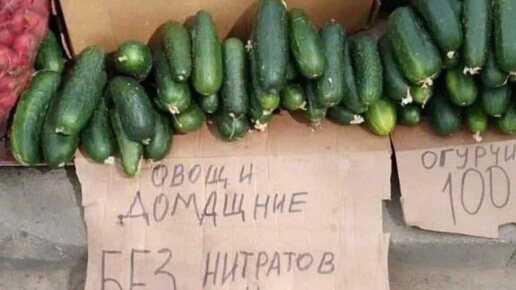 ОВОЩИ
ДОМАЩНИЕ
БЕЗ НИТРАТОВ
ОГУРЧИ
100